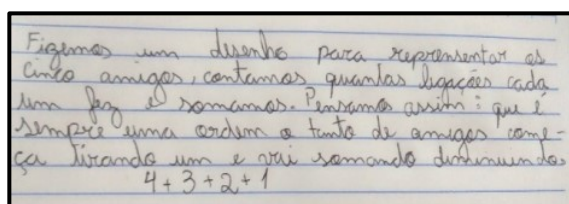 Fizemos um disenho para reprensentar os
cinco amigos, contamos quantas ligações cada
um fez e somamos. Pensamos assim: que é
sempre uma ordem o tanto de amigos come-
ça tirando um e vai somando diminuendo.
4+3+2+1